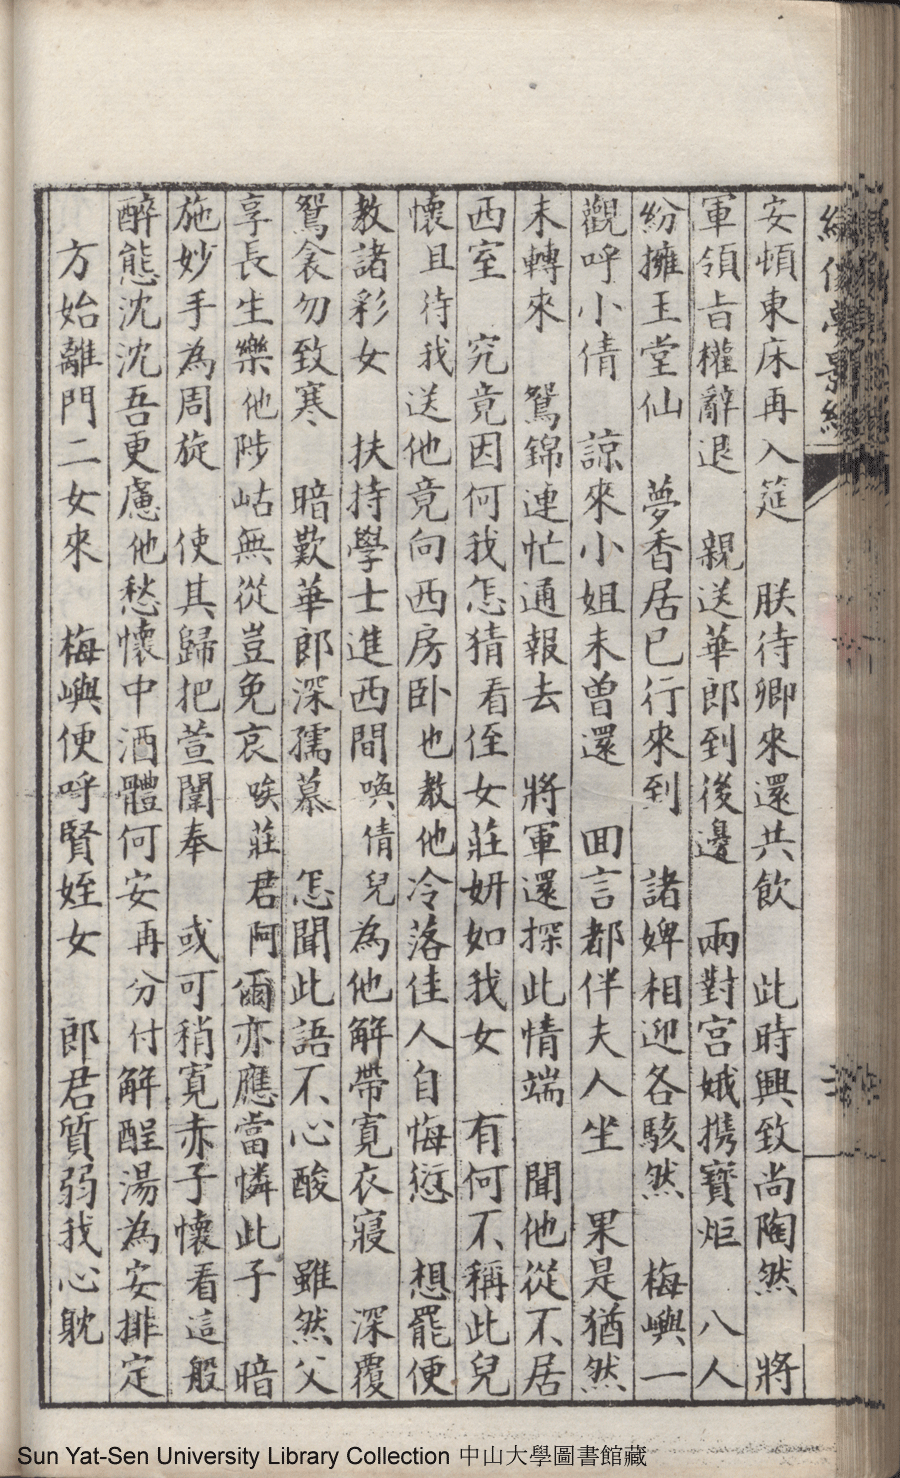 安頓東床再入筵　朕待卿來還共飲　此時興致尚陶然　將
軍領旨權辭退　親送華郎到後邊　兩對宮娥携寶炬　八人
紛擁玉堂仙　夢香居已行來到　諸婢相迎各駭然　梅嶼一
觀呼小倩　諒來小姐未曾還　回言都伴夫人坐　果是猶然
未轉來　鴛錦連忙通報去　將軍還探此情端　聞他從不居
西室　究竟因何我怎猜看侄女莊妍如我女　有何不稱此兒
懷且待我送他竟向西房卧也教他冷落佳人自悔愆　想罷便
教諸彩女　扶持學士進西間喚倩兒為他解帶寛衣寢　深覆
鴛衾勿致寒　暗歎華郎深孺慕　怎聞此語不心酸　雖然父
享長生樂他陟岵無從豈免哀唉莊君阿爾亦應當憐此子　暗
施妙手為周旋　使其歸把萱闈奉　或可稍寛赤子懷看這般
醉態沈沈吾更慮他愁懷中酒體何安再分付解酲湯為安排定
方始離門二女來　梅嶼便呼賢姪女　郎君質弱我心躭
Sun Yat-Sen University Library Collection 中山大學圖書館藏